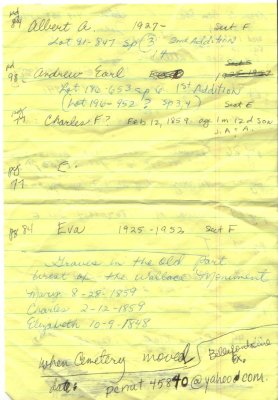 pd 84 Albert A. 1927- Sect F
Lot 91-847 Sp (3) 2nd Addition
pd 98 Andrew Earl
Lot 196-653 sp 6 1st Addition
(Lot 196-952 ? Sp 3,4) Sect E
Charles F? Feb 12, 1859 age 1m 12 d Son
J. & A.
C.
pg 84 Eva 1925-1953 Sect F
Graves in the old Part
West of the Wallace Monument
Mary 8-28-1859
Charles 2-12-1859
Elizabeth 10-9-1848
When Cemetery moved Bellefontaine
date perrat45840@yahoo.com